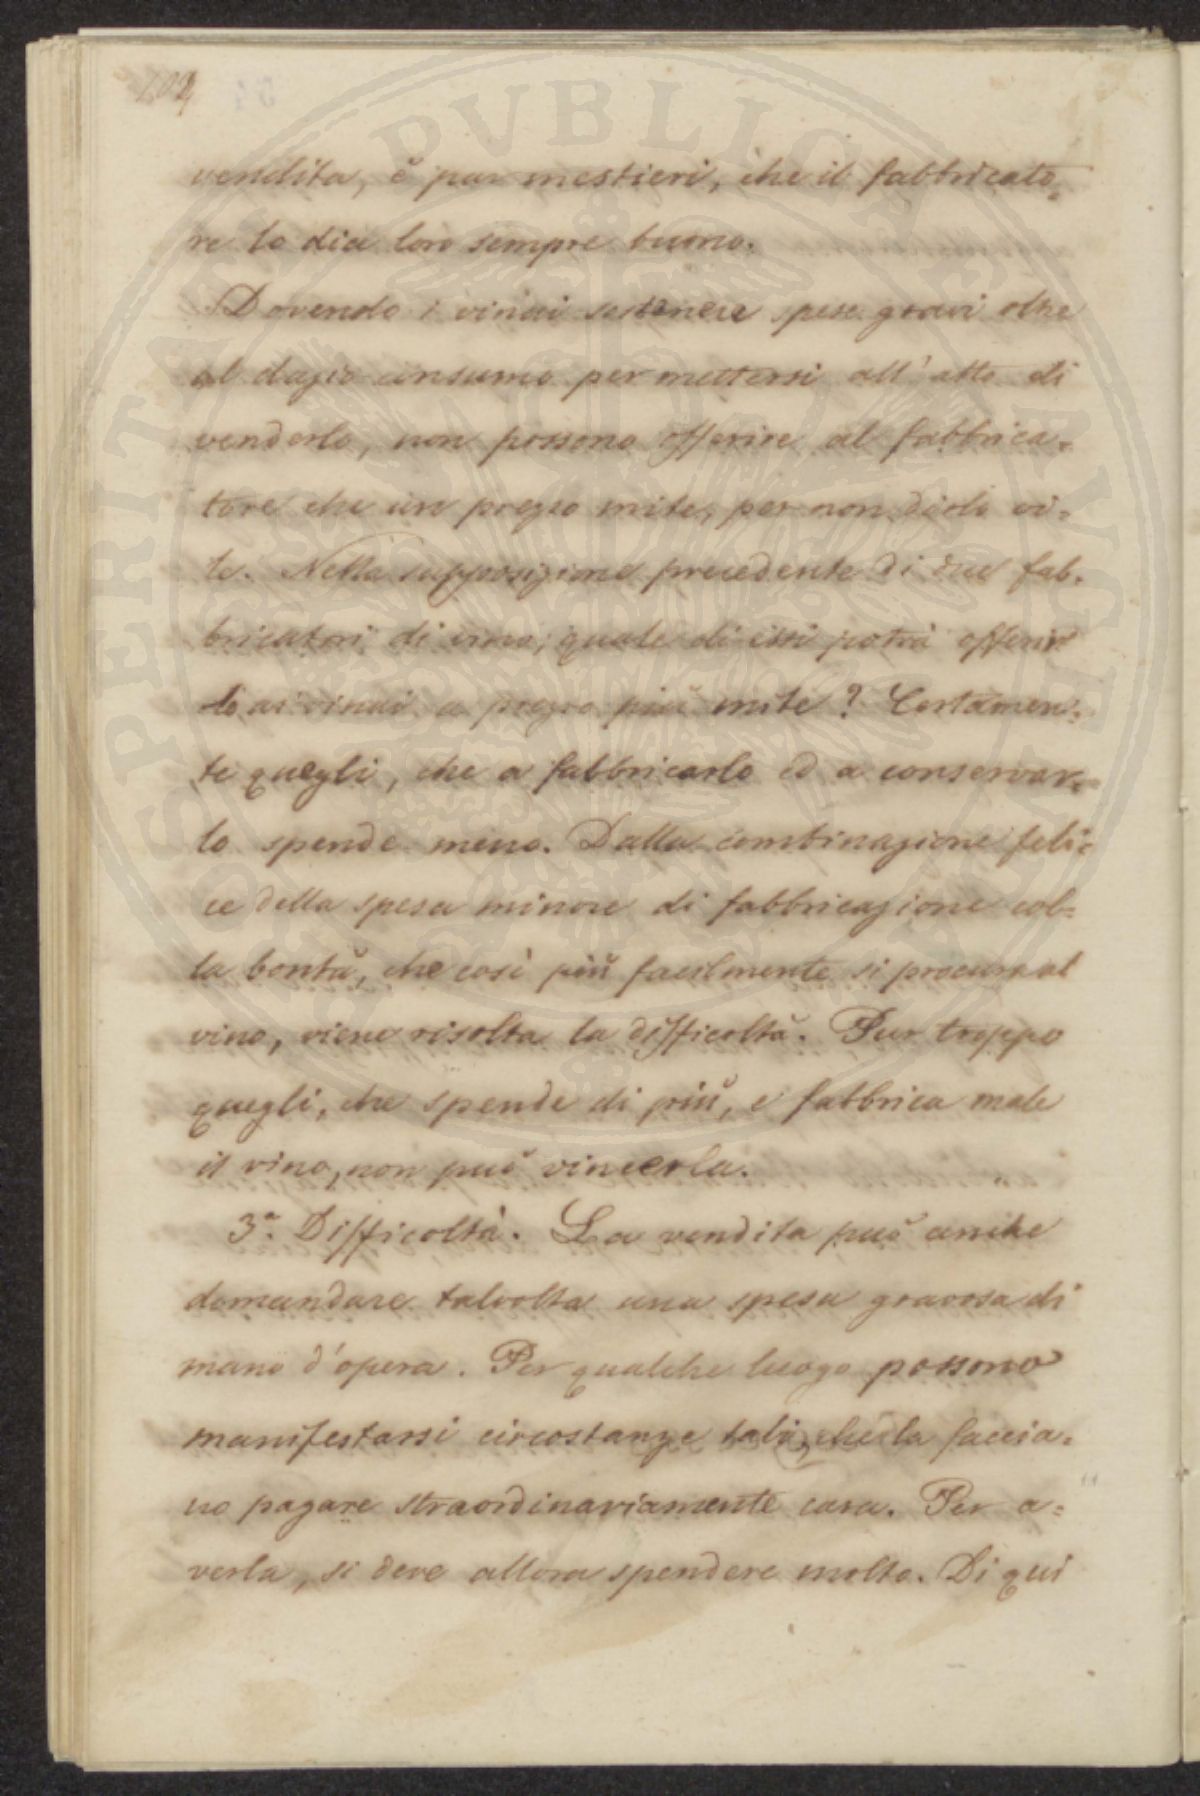 102
vendita, è pur mestieri, che il fabbricato=
re lo dia loro sempre buono.
Dovendo i vinai sostenere spese gravi oltre
al dazio consumo per mettersi all'atto di
venderlo, non possono offerire al fabbrica=
tore che un prezzo mite, per non dirlo vi=
le. Nella supposizione precedente di due fab=
bricatori di vino, quale di essi potrà offerir
lo ai vinai a prezzo più mite? Certamen=
te quegli, che a fabbricarlo ed a conservar=
lo spende meno. Dalla combinazione feli=
ce della spesa minore di fabbricazione col=
la bontà, che così più facilmente si procura al
vino, viene risolta la difficoltà. Pur troppo
quegli, che spende di più, e fabbrica male
il vino, non può vincerla.
3ª. Difficoltà. La vendita può anche
domandare talvolta una spesa gravosa di
mano d'opera. Per qualche luogo possono
manifestarsi circostanze tali, che la faccia=
no pagare straordinariamente cara. Per a=
verla, si deve allora spendere molto. Di qui
PUBLICAE AUCH
PROSPERITATI